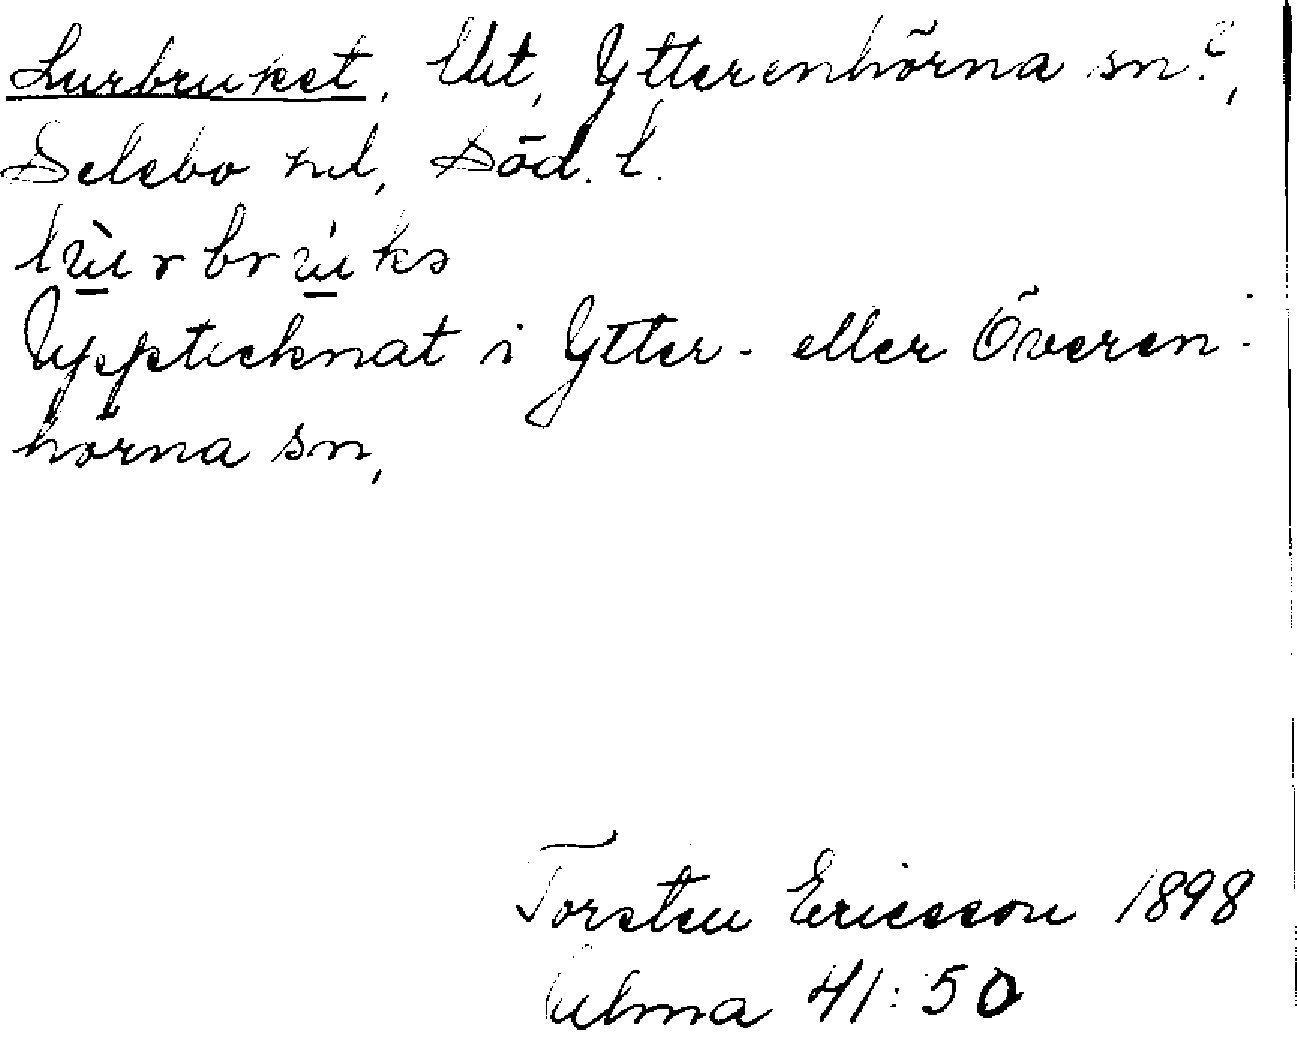 Lurbruket, Ut, Ytterenhörna sn?,
Selebo hd, Söd. l.
lùrbrúks
Upptecknat i Ytter- eller Överen-
hörna sn,
Torsten Ericsson 1898
Ulma 41:50